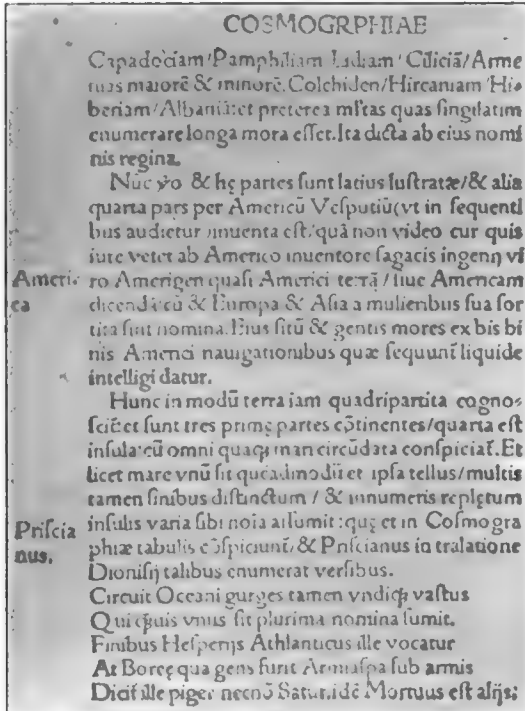 COSMOGRPHIAE
Capadociam/Pamphiliam Lidiam/Ciliciā/Arme
nias maiorē & minorē. Colchiden/Hircaniam/Hi⸗
beriam/Albaniā:et preterea mltas quas singilatim
enumerare longa mora esset. Ita dicta ab eius nomi
nis regina.
Nūc ṽo & hę partes sunt latius lustratæ/& alia
quarta pars per Americū Vesputiū(vt in sequenti
bus audietur)inuenta est/quā non video cur quis
iure vetet ab Americo inuentore sagacis ingenij vi
Ameri⸗
ro Amerigen quasi Americi terrā/siue Americam
ca
dicendā:cū & Europa & Asia a mulieribus sua sor
tita sint nomina. Eius sitū & gentis mores ex bis bi
nis Americi nauigationibus quæ sequunt liquide
intelligi datur.
Hunc in modū terra iam quadripartita cognos⸗
scit:et sunt tres prime partes cōtinentes/quarta est
insula:cū omni quaq; mari circūdata conspiciat. Et
licet mare vnū sit queadmodū et ipsa tellus/multis
tamen finibus distinctum/& innumeris repletum
Priscia
insulis varia sibi noīa assumit:quę et in Cosmogra
nus.
phiæ tabulis cōspiciunt/& Priscianus in tralatione
Dionisij talibus enumerat versibus.
Circuit Oceani gurges tamen vndiq; vastus
Qui q̃uis vnus sit plurima nomina sumit.
Finibus Hesperijs Athlanticus ille vocatur
At Boreę qua gens furit Armiaspa sub armis
Dicit ille piger necnō Satur. idē Mortuus est alijs;